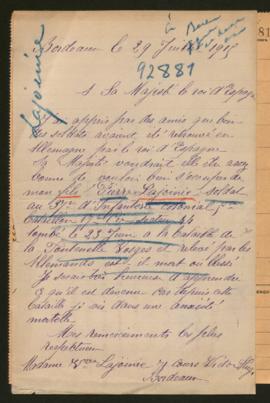 à Berne
Bordeaux le 29 Juillet 1915
Lajoinie
92881
A Sa Majesté le roi d'Espagne
J'ai appris par des amis que bon
des soldats avaient été retrouvé en
Allemagne par le roi d'Espagne
Sa Majesté voudrait elle être assez
bonne de vouloir bien s'occuper de
mon fils Pierre Lajoinie soldat
au d'Infanterie Coloniale
tombé le 23 Juin à la bataille de
la Fontenelle Vosges et relevé par les
Allemands est il mort ou blessé
Je serais bien heureuse d'apprendre
ce qu'il est devenu car depuis cette
bataille je suis dans une anxiété
mortelle
Mes remerciements les plus
respectueux
Madame Lajoinie cours Victor Hugo
Bordeaux